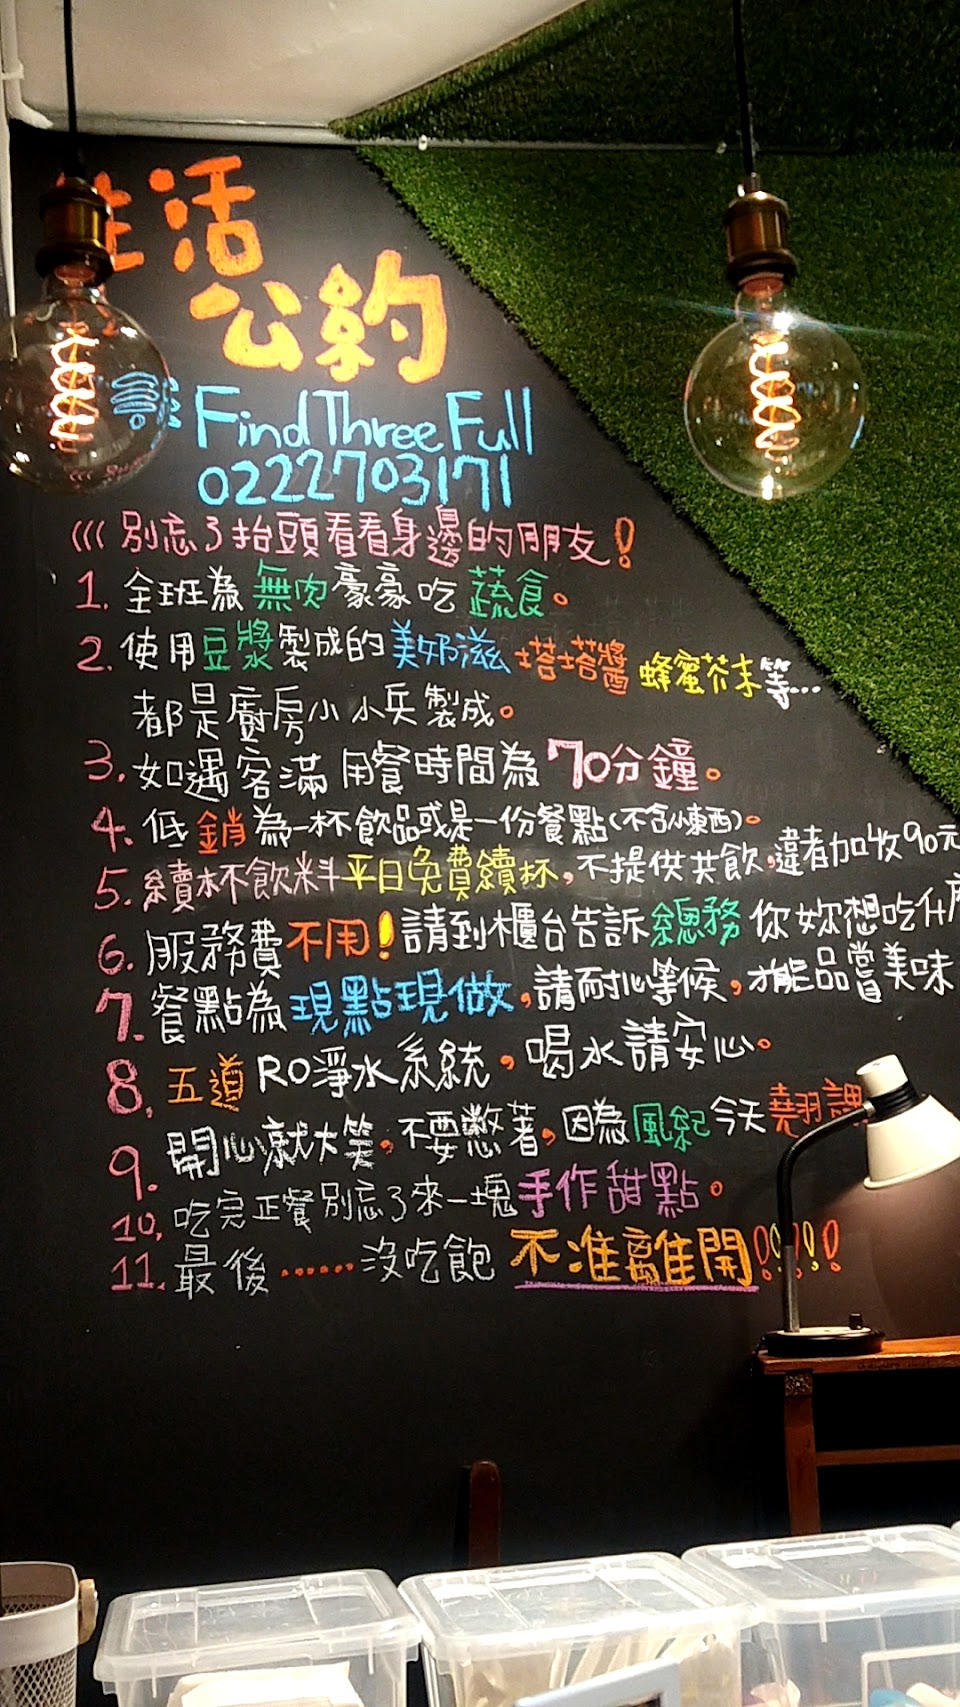 生活
公約
Find Three Full
0222703171
((( 別忘了抬頭看看身邊的朋友！
1. 全班為無肉豪豪吃蔬食。
2. 使用豆漿製成的美奶滋 塔塔醬 蜂蜜芥末等...
都是廚房小小兵製成。
3. 如遇客滿 用餐時間為70分鐘。
4. 低銷為一杯飲品或是一份餐點(不含小東西)。
5. 續杯飲料平日免費續杯，不提供共飲，違者加收90元
6. 服務費不用！請到櫃台告訴總務 你妳想吃什麼
7. 餐點為現點現做，請耐心等候，才能品嘗美味
8. 五道RO淨水系統，喝水請安心。
9. 開心就大笑，不要憋著，因為風紀今天翹課
10. 吃完正餐別忘了來一塊手作甜點。
11. 最後.......沒吃飽 不准離開!!!!!